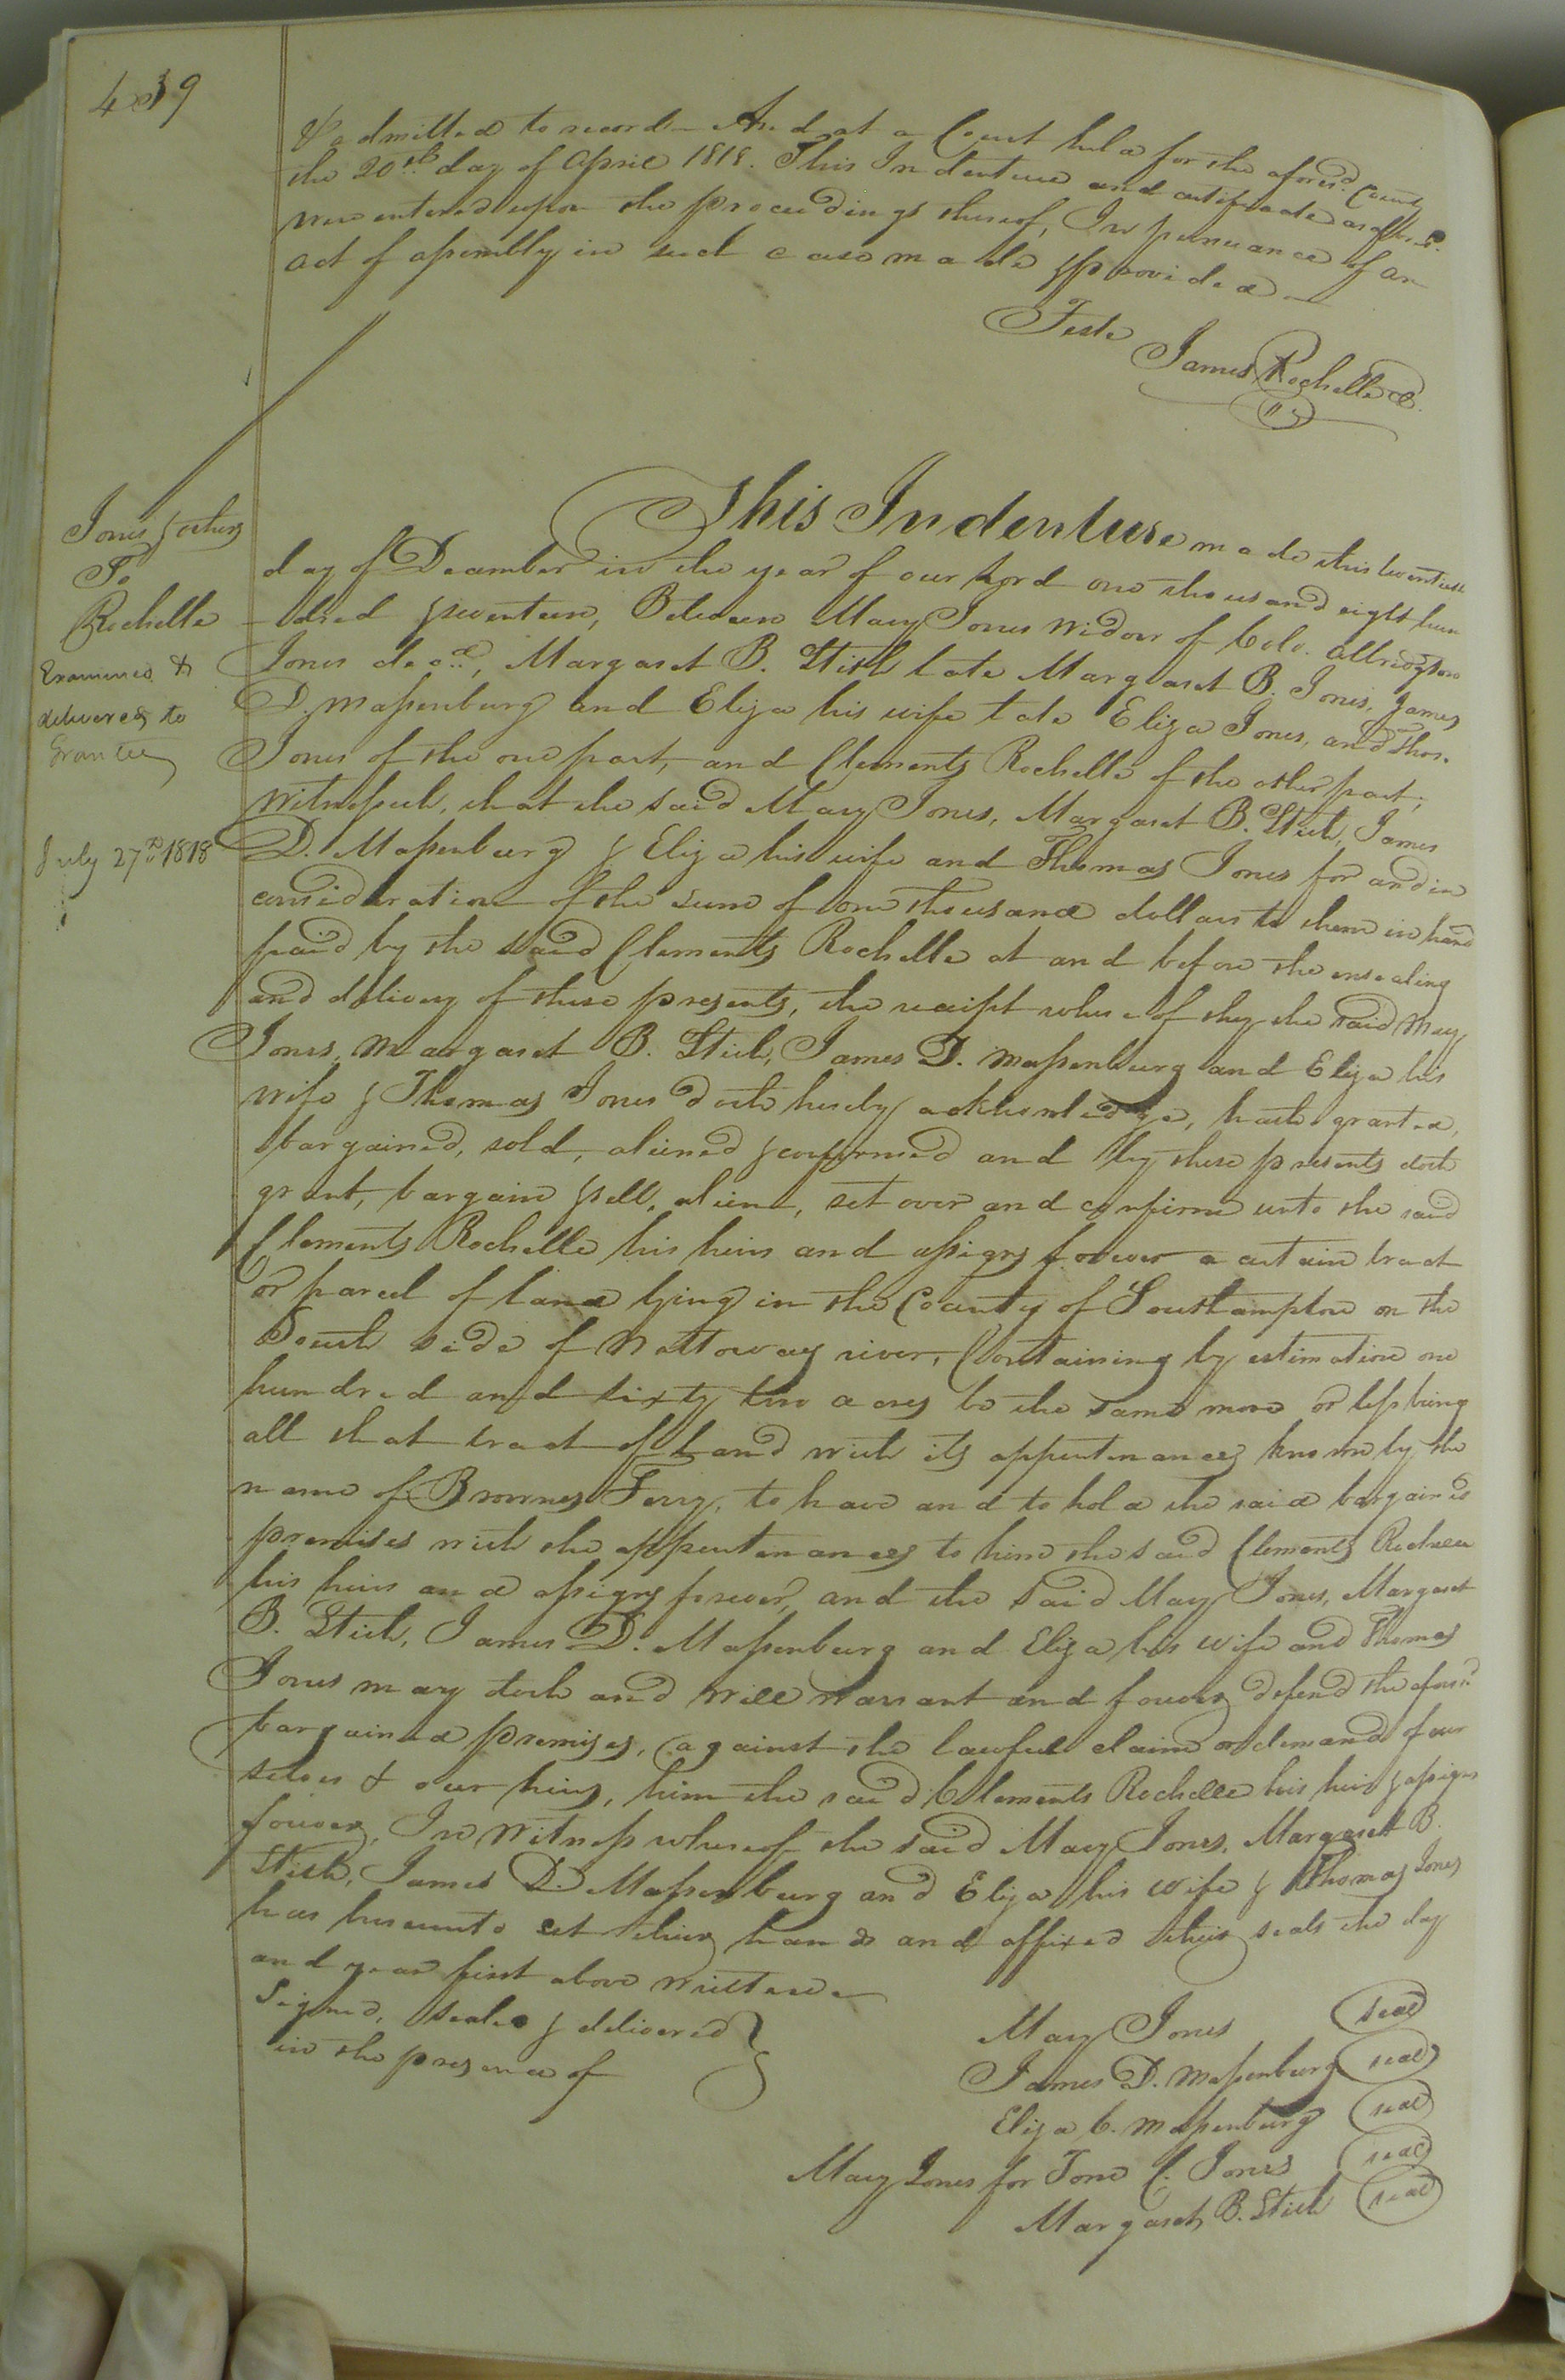 439
& admitted to record – And at a Court held for the aforesd. County
the 20th. day of April 1818. This Indenture and certificate as afsd.
were entered upon the proceedings thereof, In persuance of an
act of assembly in such case made & provided –
Teste
James Rochelle Cl.
Jones & others
To
Rochelle
Examined &
delivered to
Grantee
July 27th 1818
This Indenture made this twentieth
day of December in the year of our Lord one thousand eight hun
-dred & seventeen, Between Mary Jones widow of Colo. Allridgton
Jones decd., Margaret B. Stith late Margaret B. Jones, James
D. Massenburg and Eliza his wife late Eliza Jones, and Thos.
Jones of the one part, and Clements Rochelle of the other part,
Witnesseth, that the said Mary Jones, Margaret B. Stith, James
D. Massenburg & Eliza his wife and Thomas Jones for and in
consideration of the sum of one thousand dollars to them in hand
paid by the said Clements Rochelle at and before the ensealing
and delivery of these presents, the receipt whereof they the said Mary
Jones, Margaret B. Stith, James D. Massenburg and Eliza his
wife & Thomas Jones doth hereby acknowledge, hath granted,
bargained, sold, aliened & confirmed and by these presents doth
grant, bargain & sell, alien, set over and confirm unto the said
Clements Rochelle his heirs and assigns forever a certain tract
or parcel of land lying in the County of Southampton on the
South side of Nottoway river, Containing by estimation one
hundred and sixty two acres be the same more or less being
all that tract of land with its appurtenances known by the
name of Browns Ferry, to have and to hold the said bargained
premises with the appurtenances to him the said Clements Rochelle
his heirs and assigns forever, and the said Mary Jones, Margaret
B. Stith, James D. Massenburg and Eliza his wife and Thomas
Jones may doth and will warrant and forever defend the aforsd.
bargained premises, against the lawful claim or demand of our
selves & our heirs, him the said Clements Rochelle his heirs & assigns
forever, In Witness whereof the said Mary Jones, Margaret B.
Stith, James D. Massenburg and Eliza his wife & Thomas Jones
has hereunto set their hands and affixed their seals the day
and year first above written
Signed, sealed & delivered
in the presence of
Mary Jones seal
James D. Massenburg seal
Eliza C. Massenburg seal
Mary Jones for Tom C. Jones seal
Margaret B. Stith seal